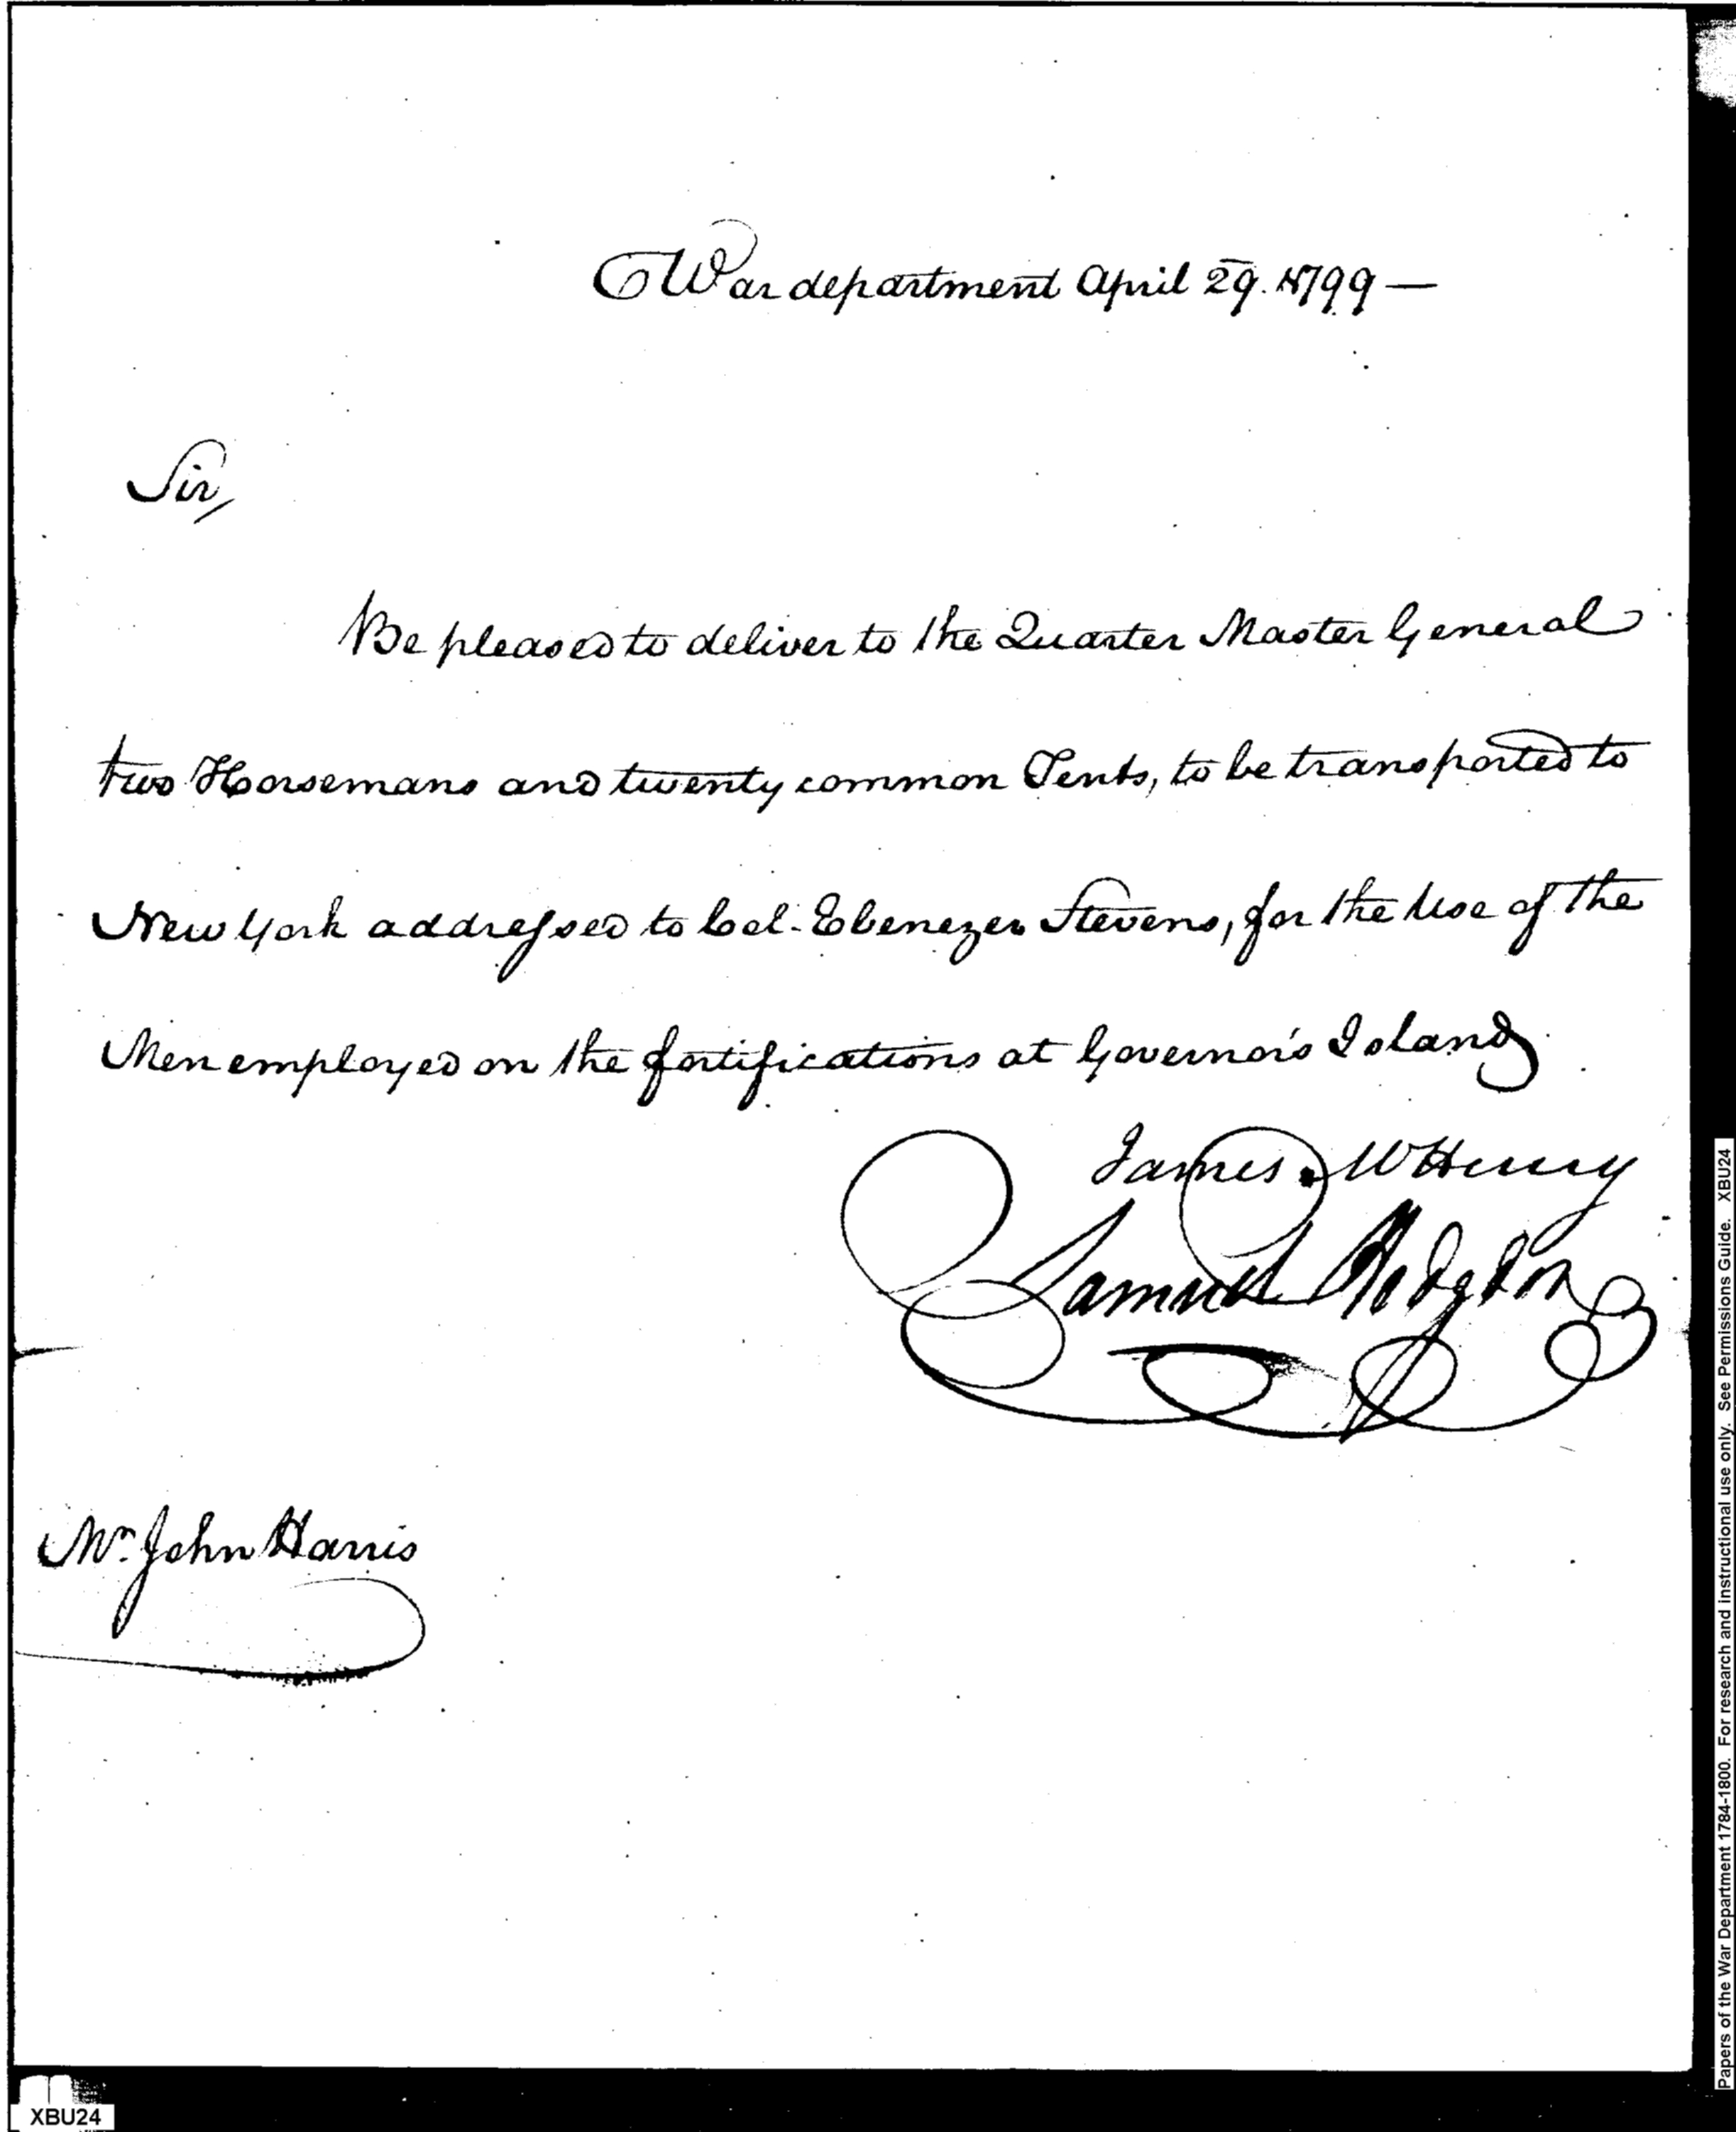 War department April 29. 1799 —
Sir,
Be pleased to deliver to the Quarter Master General
two Horsemans and twenty common Tents, to be transported to
New York addressed to Col. Ebenezer Stevens, for the Use of the
Men employed on the fortifications at Governor's Island
James McHenry
Samuel Hodgdon
Mr. John Harris
XBU24
Papers of the War Department 1784-1800. For research and instructional use only. See Permissions Guide. XBU24